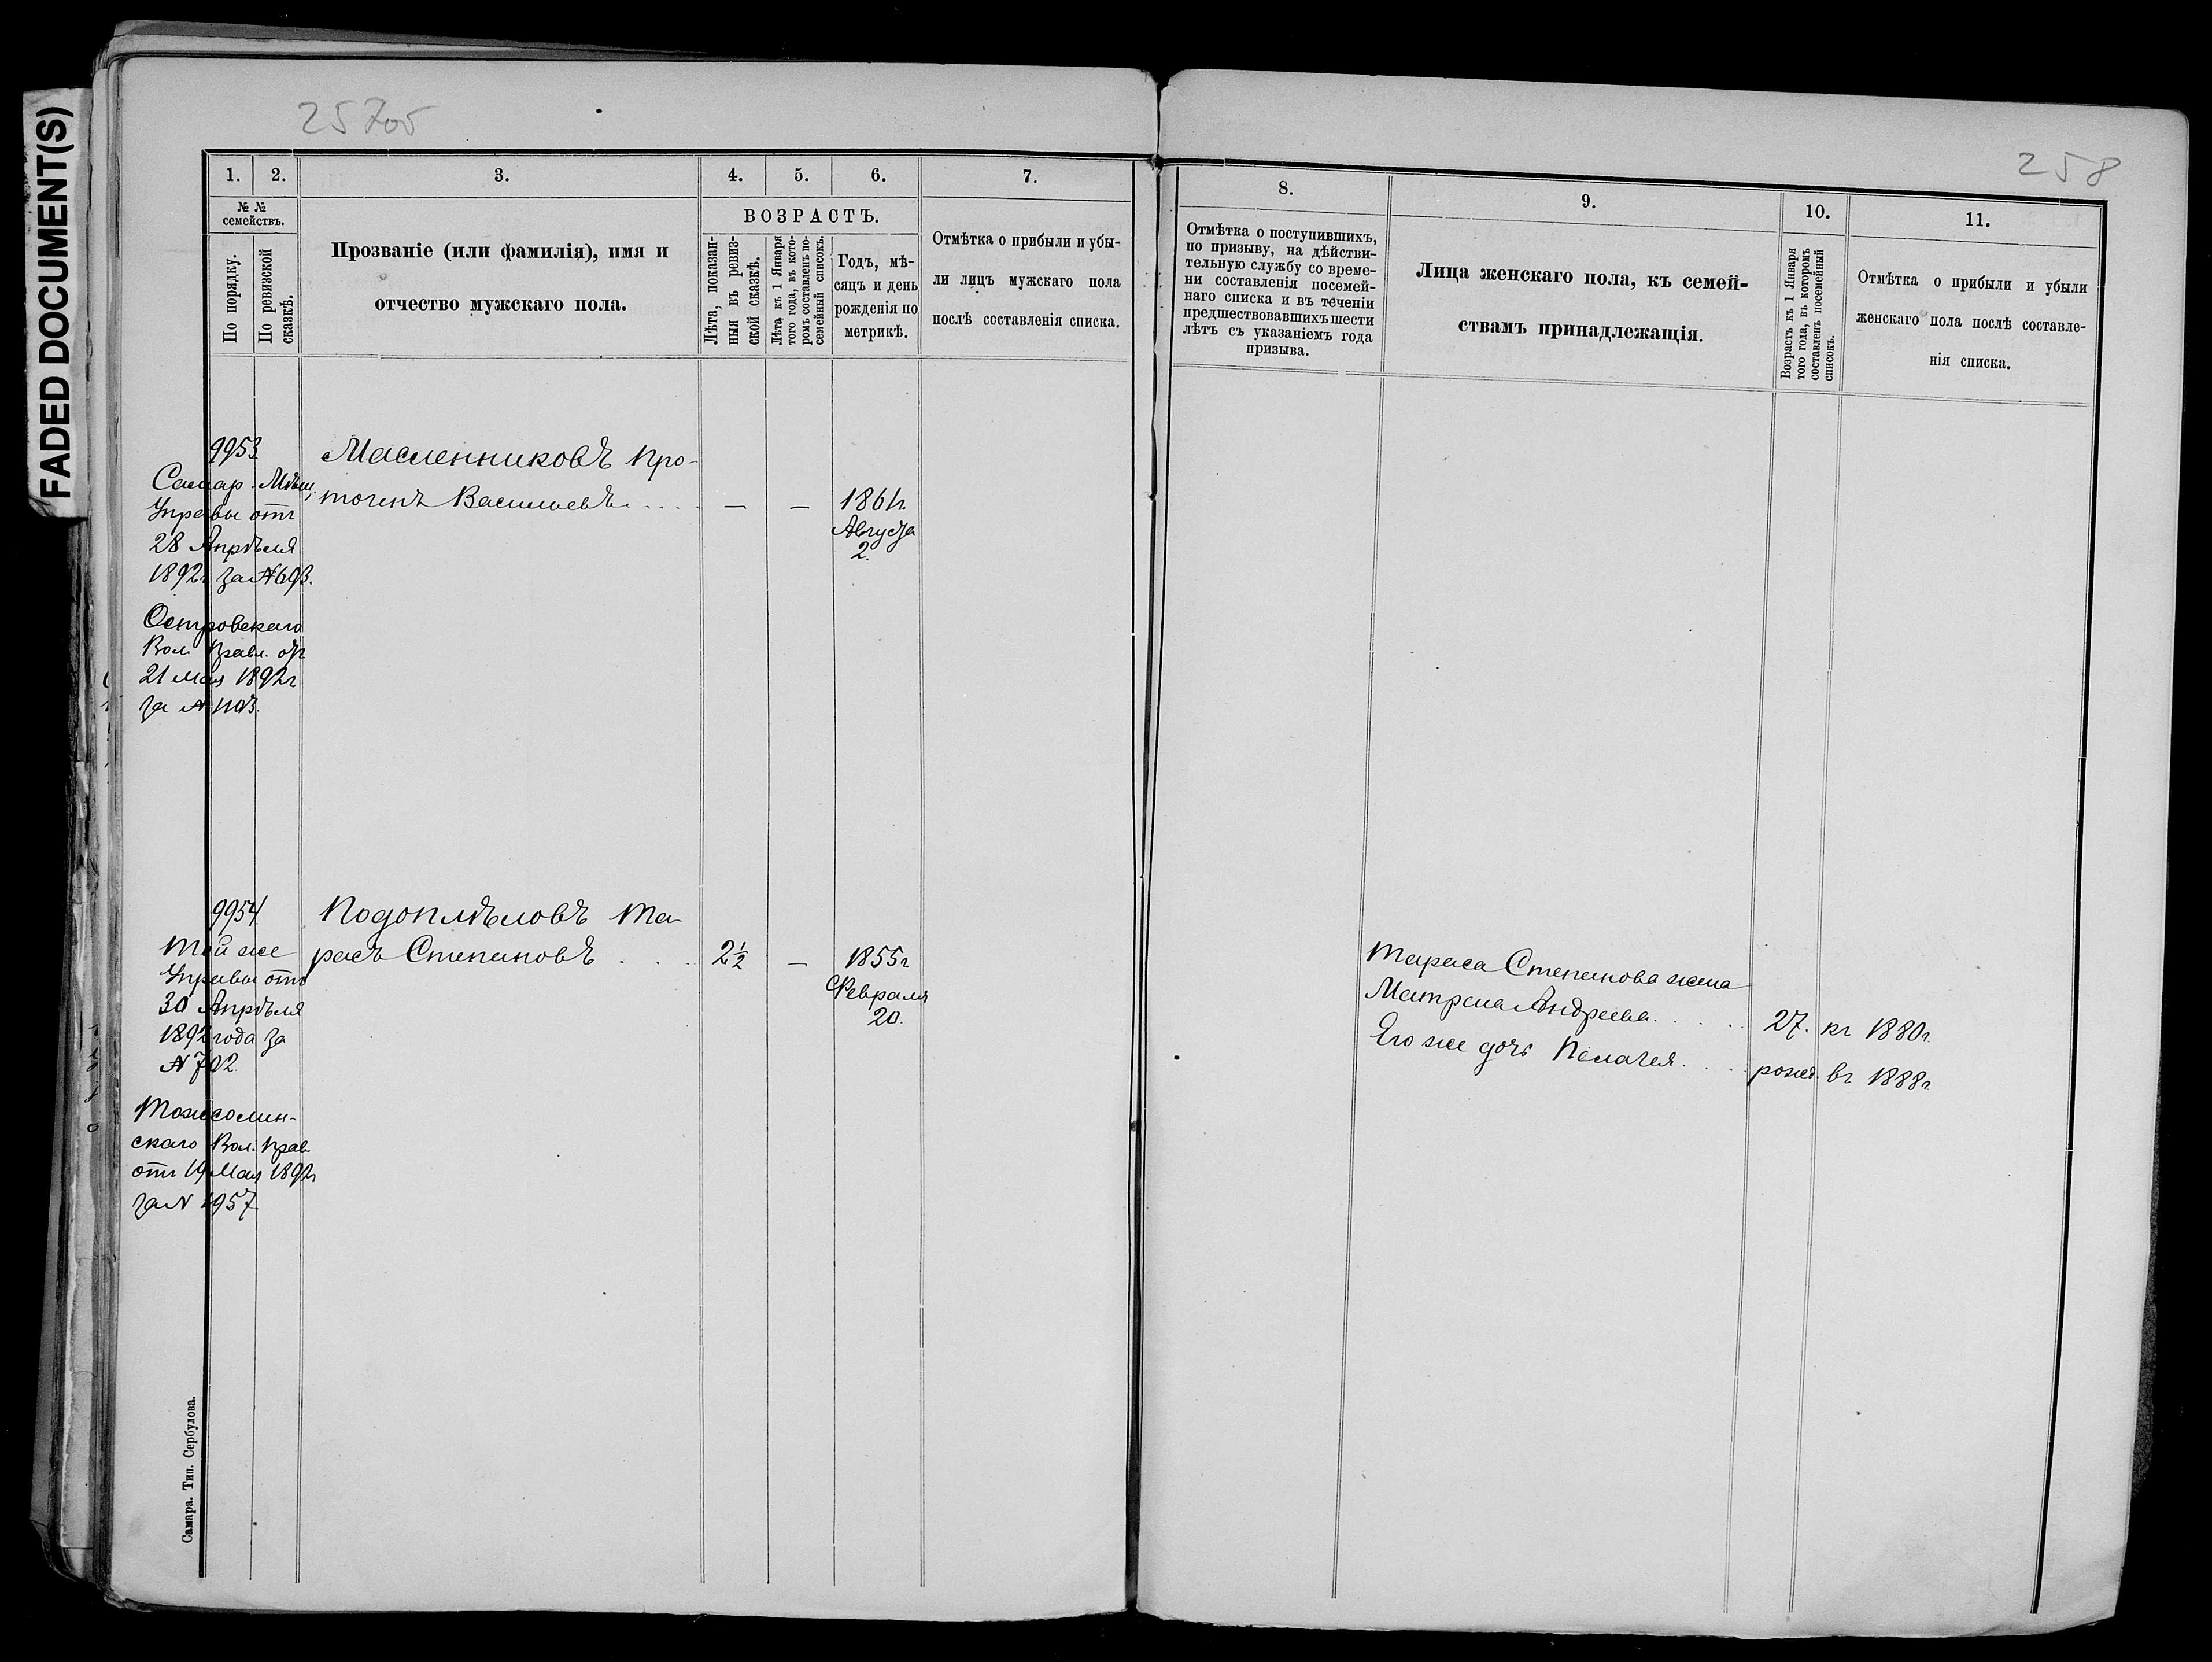 FADED DOCUMENT(S)
257об
258
1. 2. 3. 4. 5. 6. 7.
№ №
семействъ.
По порядку.
По ревизской
сказкѣ.
Прозваніе (или фамилія), имя и
отчество мужскаго пола.
ВОЗРАСТЪ.
Лѣта, показан-
ныя въ ревиз-
ской сказкѣ.
Лѣта къ 1 Января
того года, въ кото-
ромъ составленъ по-
семейный списокъ.
Годъ, мѣ-
сяцъ и день
рожденія по
метрикѣ.
Отмѣтка о прибыли и убы-
ли лицъ мужскаго пола
послѣ составленія списка.
8. 9. 10. 11.
Отмѣтка о поступившихъ,
по призыву, на дѣйстви-
тельную службу со време-
ни составленія посемей-
наго списка и въ теченіи
предшествовавшихъ шести
лѣтъ съ указаніемъ года
призыва.
Лица женскаго пола, къ семей-
ствамъ принадлежащія.
Возрастъ къ 1 Января
того года, въ которомъ
составленъ посемейный
списокъ.
Отмѣтка о прибыли и убыли
женскаго пола послѣ составле-
нія списка.
9953.
Самар. Мѣщ.
Управы отъ
28 Апрѣля
1892г за №693.
Островскаго
Вол. Правл. отъ
21 Мая 1892г
за № 1103.
Масленниковъ Про-
Васильевъ . . . . — — 1861г
Августа
2.
9954
Той же
Управы отъ
30 Апрѣля
1892 года за
№ 702
скаго Вол. Прав
отъ 19 Мая 1892г
за № 1957
Подоплѣловъ Та-
расъ Степановъ . . . 2½ — 1855г
Февраля
20.
Тараса Степанова жена
Матрена Андреева . . . . . 27. къ 1880г.
Его же дочь Пелагея . . . . рожд. въ 1888г
Самара. Тип. Сербулова.